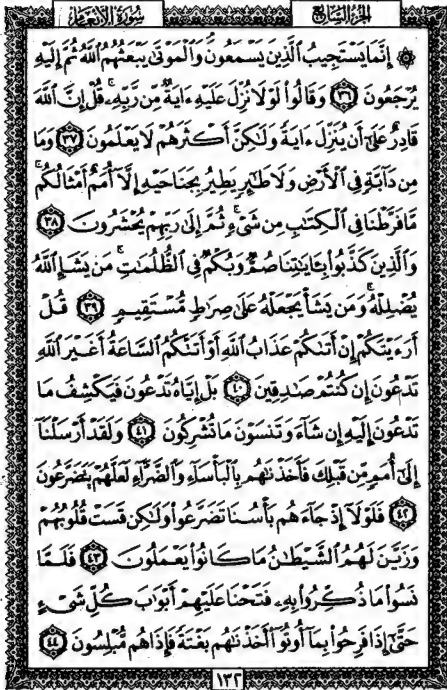 الجزء السابع سورة الأنعام
۞ إِنَّمَا يَسْتَجِيبُ الَّذِينَ يَسْمَعُونَ وَالْمَوْتَىٰ يَبْعَثُهُمُ اللَّهُ ثُمَّ إِلَيْهِ
يُرْجَعُونَ ٣٦ وَقَالُوا لَوْلَا نُزِّلَ عَلَيْهِ ءَايَةٌ مِّن رَّبِّهِ ۚ قُلْ إِنَّ اللَّهَ
قَادِرٌ عَلَىٰ أَن يُنَزِّلَ ءَايَةً وَلَٰكِنَّ أَكْثَرَهُمْ لَا يَعْلَمُونَ ٣٧ وَمَا
مِن دَآبَّةٍ فِي الْأَرْضِ وَلَا طَٰٓئِرٍ يَطِيرُ بِجَنَاحَيْهِ إِلَّآ أُمَمٌ أَمْثَالُكُم ۚ
مَّا فَرَّطْنَا فِي الْكِتَٰبِ مِن شَيْءٍ ۚ ثُمَّ إِلَىٰ رَبِّهِمْ يُحْشَرُونَ ٣٨
وَالَّذِينَ كَذَّبُوا بِـَٔايَٰتِنَا صُمٌّ وَبُكْمٌ فِي الظُّلُمَٰتِ ۗ مَن يَشَإِ اللَّهُ
يُضْلِلْهُ وَمَن يَشَأْ يَجْعَلْهُ عَلَىٰ صِرَٰطٍ مُّسْتَقِيمٍ ٣٩ قُلْ
أَرَءَيْتَكُمْ إِنْ أَتَىٰكُمْ عَذَابُ اللَّهِ أَوْ أَتَتْكُمُ السَّاعَةُ أَغَيْرَ اللَّهِ
تَدْعُونَ إِن كُنتُمْ صَٰدِقِينَ ٤٠ بَلْ إِيَّاهُ تَدْعُونَ فَيَكْشِفُ مَا
تَدْعُونَ إِلَيْهِ إِن شَآءَ وَتَنسَوْنَ مَا تُشْرِكُونَ ٤١ وَلَقَدْ أَرْسَلْنَآ
إِلَىٰٓ أُمَمٍ مِّن قَبْلِكَ فَأَخَذْنَٰهُم بِالْبَأْسَآءِ وَالضَّرَّآءِ لَعَلَّهُمْ يَتَضَرَّعُونَ
٤٢ فَلَوْلَآ إِذْ جَآءَهُم بَأْسُنَا تَضَرَّعُوا وَلَٰكِن قَسَتْ قُلُوبُهُمْ
وَزَيَّنَ لَهُمُ الشَّيْطَٰنُ مَا كَانُوا يَعْمَلُونَ ٤٣ فَلَمَّا
نَسُوا مَا ذُكِّرُوا بِهِ فَتَحْنَا عَلَيْهِمْ أَبْوَٰبَ كُلِّ شَيْءٍ
حَتَّىٰٓ إِذَا فَرِحُوا بِمَآ أُوتُوٓا أَخَذْنَٰهُم بَغْتَةً فَإِذَا هُم مُّبْلِسُونَ ٤٤
١٣٢